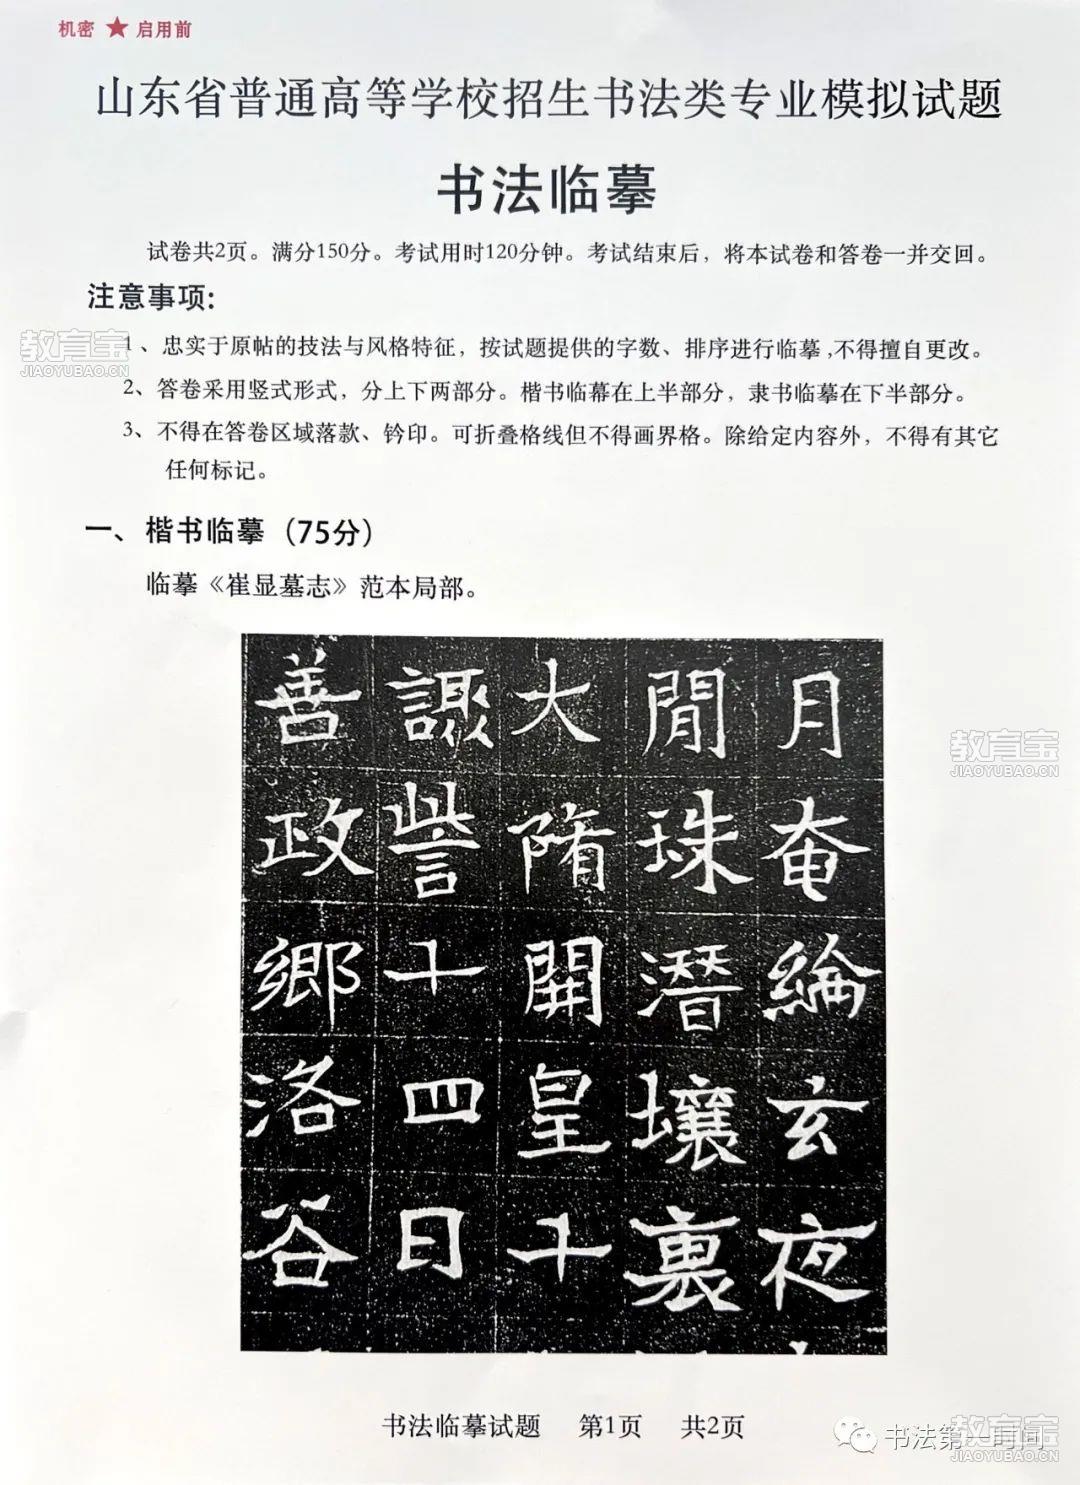 机密 ★ 启用前
山东省普通高等学校招生书法类专业模拟试题
书法临摹
试卷共2页。满分150分。考试用时120分钟。考试结束后，将本试卷和答卷一并交回。
注意事项:
1、忠实于原帖的技法与风格特征，按试题提供的字数、排序进行临摹,不得擅自更改。
2、答卷采用竖式形式，分上下两部分。楷书临幕在上半部分，隶书临摹在下半部分。
3、不得在答卷区域落款、钤印。可折叠格线但不得画界格。除给定内容外，不得有其它
任何标记。
一、楷书临摹（75分）
临摹《崔显墓志》范本局部。
月奄綸玄夜
閒珠潛壤裏
大隋開皇十
諏訾十四日
善政鄉洛谷
书法临摹试题 第1页 共2页
教育宝
JIAOYUBAO.CN
教育宝
JIAOYUBAO.CN
书法第一时间
教育宝
JIAOYUBAO.CN